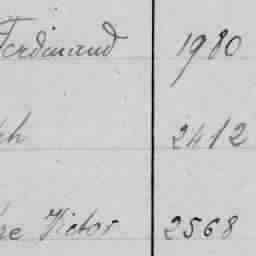 Ferdinand 1980
ph 2412
re Victor 2568